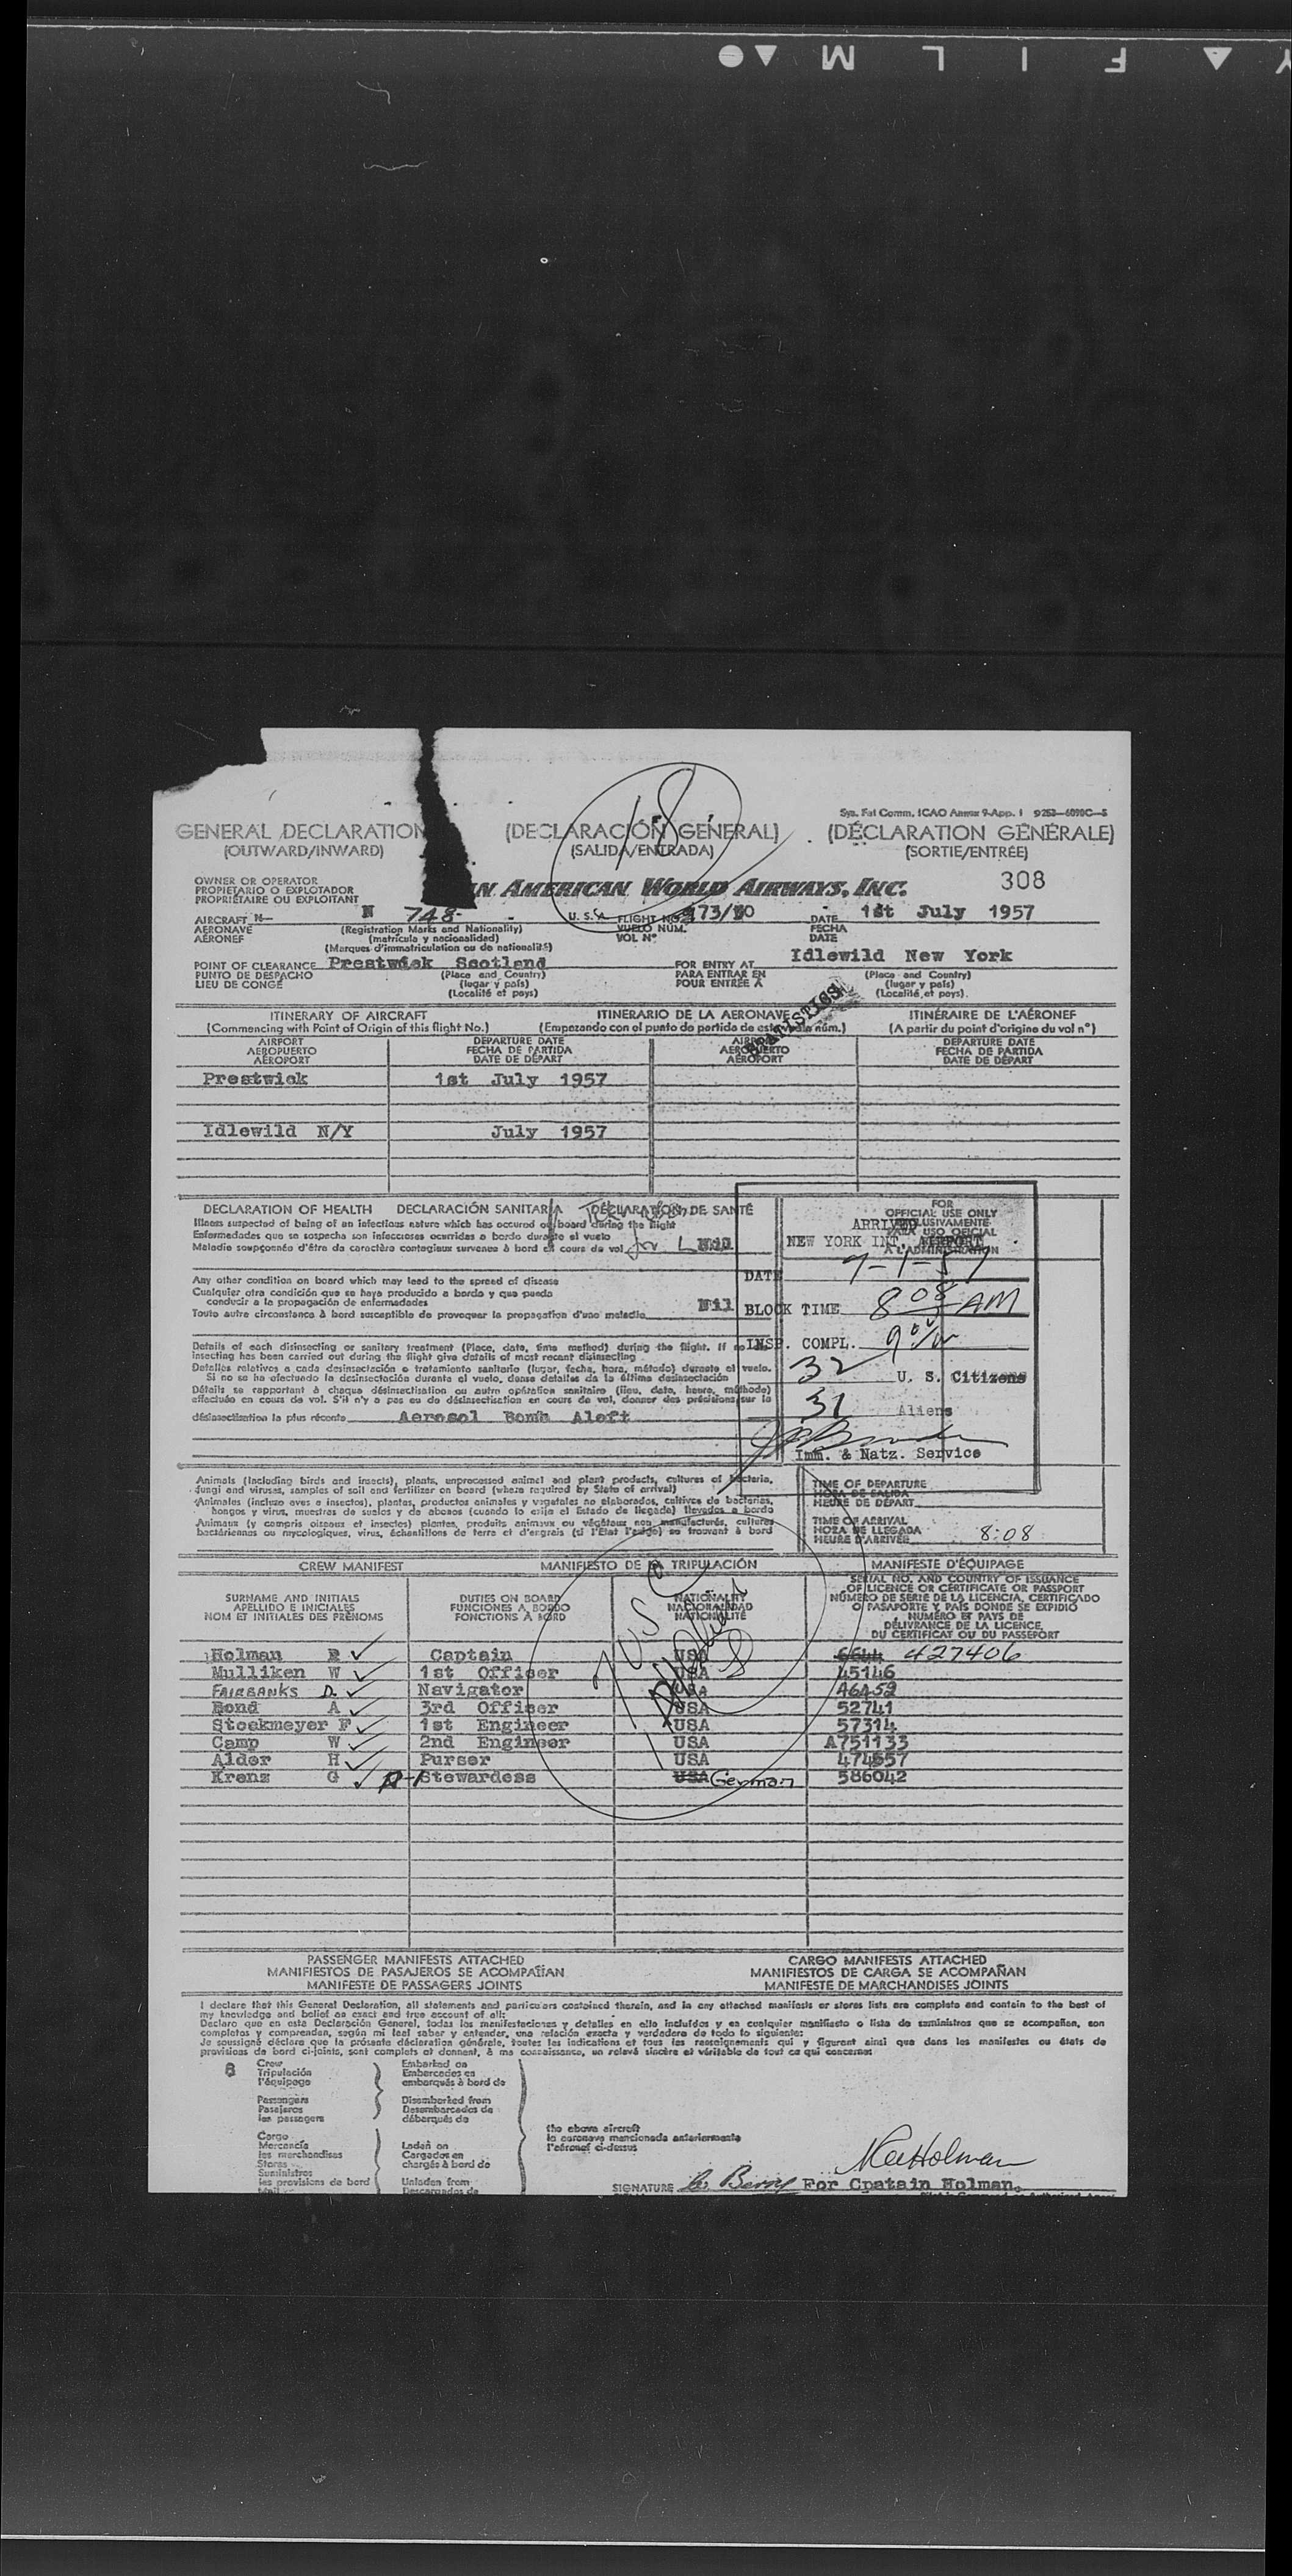 Y ▲ F I L M ▲ ●
18
Sys. Fat Comm. ICAO Annex 9-App. I
GENERAL DECLARATION (DECLARACIÓN GENERAL) (DÉCLARATION GÉNÉRALE)
(OUTWARD/INWARD) (SALIDA/ENTRADA) (SORTIE/ENTRÉE)
308
OWNER OR OPERATOR
PROPIETARIO O EXPLOTADOR
PROPRIÉTAIRE OU EXPLOITANT
AN AMERICAN WORLD AIRWAYS, INC.
AIRCRAFT N— N 748 U. S. A. FLIGHT NO. 173/ DATE 1st July 1957
AERONAVE (Registration Marks and Nationality) VUELO NÚM. FECHA
AÉRONEF (matrícula y nacionalidad) VOL Nº DATE
(Marques d'immatriculation ou de nationalité)
POINT OF CLEARANCE Prestwick Scotland FOR ENTRY AT Idlewild New York
PUNTO DE DESPACHO (Place and Country) PARA ENTRAR EN (Place and Country)
LIEU DE CONGÉ (lugar y país) POUR ENTRÉE À (lugar y país)
(Localité et pays) (Localité et pays)
STATISTICS
ITINERARY OF AIRCRAFT ITINERARIO DE LA AERONAVE ITINÉRAIRE DE L'AÉRONEF
(Commencing with Point of Origin of this flight No.) (Empezando con el punto de partida de este vuelo núm.) (A partir du point d'origine du vol nº)
AIRPORT DEPARTURE DATE AIRPORT DEPARTURE DATE
AEROPUERTO FECHA DE PARTIDA AEROPUERTO FECHA DE PARTIDA
AÉROPORT DATE DE DÉPART AÉROPORT DATE DE DÉPART
Prestwick 1st July 1957
Idlewild N/Y July 1957
DECLARATION OF HEALTH DECLARACIÓN SANITARIA DÉCLARATION DE SANTÉ
Illness suspected of being of an infectious nature which has occured on board during the flight
Enfermedades que se sospecha son infecciosas ocurridas a bordo durante el vuelo
Maladie soupçonnée d'être de caractère contagieux survenue à bord en cours de vol Nil
Any other condition on board which may lead to the spread of disease
Cualquier otra condición que se haya producido a bordo y que pueda
conducir a la propagación de enfermedades
Toute autre circonstance à bord susceptible de provoquer la propagation d'une maladie Nil
Details of each disinsecting or sanitary treatment (Place, date, time method) during the flight. If no
insecting has been carried out during the flight give details of most recent disinsecting
Detalles relativos a cada desinsectación o tratamiento sanitario (lugar, fecha, hora, método) durante el vuelo.
Si no se ha efectuado la desinsectación durante el vuelo, dense detalles de la última desinsectación
Détails se rapportant à chaque désinsectisation ou autre opération sanitaire (lieu, date, heure, méthode)
effectuée en cours de vol. S'il n'y a pas eu de désinsectisation en cours de vol, donner des précisions sur la
désinsectisation la plus récente Aerosol Bomb Aloft
FOR
OFFICIAL USE ONLY
EXCLUSIVAMENTE
PARA USO OFICIAL
A L'ADMINISTRATION
ARRIVED
NEW YORK INT. AIRPORT
DATE 7-1-57
BLOCK TIME 8 08 AM
INSP. COMPL. 9
32 U. S. Citizens
31 Aliens
Imm. & Natz. Service
Animals (including birds and insects), plants, unprocessed animal and plant products, cultures of bacteria,
fungi and viruses, samples of soil and fertilizer on board (where required by State of arrival)
Animales (incluso aves e insectos), plantas, productos animales y vegetales no elaborados, cultivos de bacterias,
hongos y virus, muestras de suelos y de abonos (cuando lo exija el Estado de llegada) llevados a bordo
Animaux (y compris oiseaux et insectes) plantes, produits animaux ou végétaux non manufacturés, cultures
bactériennes ou mycologiques, virus, échantillons de terre et d'engrais (si l'Etat l'exige) se trouvant à bord
TIME OF DEPARTURE
HORA DE SALIDA
HEURE DE DÉPART
TIME OF ARRIVAL
HORA DE LLEGADA 8:08
HEURE D'ARRIVÉE
CREW MANIFEST MANIFIESTO DE TRIPULACIÓN MANIFESTE D'ÉQUIPAGE
SURNAME AND INITIALS DUTIES ON BOARD NATIONALITY
APELLIDO E INICIALES FUNCIONES A BORDO NACIONALIDAD
NOM ET INITIALES DES PRÉNOMS FONCTIONS À BORD NATIONALITÉ
SERIAL NO. AND COUNTRY OF ISSUANCE
OF LICENCE OR CERTIFICATE OR PASSPORT
NÚMERO DE SERIE DE LA LICENCIA, CERTIFICADO
O PASAPORTE Y PAÍS DONDE SE EXPIDIÓ
NUMÉRO ET PAYS DE
DÉLIVRANCE DE LA LICENCE,
DU CERTIFICAT OU DU PASSEPORT
7 USC
Holman R Captain USA 6644 427406
Mulliken W 1st Officer USA 45146
FAIRBANKS D. Navigator USA A6459
Bond A 3rd Officer USA 52741
Stockmeyer F 1st Engineer USA 57314
Camp W 2nd Engineer USA A751133
Alder H Purser USA 474657
Krenz G Stewardess USA German 586042
PASSENGER MANIFESTS ATTACHED CARGO MANIFESTS ATTACHED
MANIFIESTOS DE PASAJEROS SE ACOMPAÑAN MANIFIESTOS DE CARGA SE ACOMPAÑAN
MANIFESTE DE PASSAGERS JOINTS MANIFESTE DE MARCHANDISES JOINTS
I declare that this General Declaration, all statements and particulars contained therein, and in any attached manifests or stores lists are complete and contain to the best of
my knowledge and belief an exact and true account of all:
Declaro que en esta Declaración General, todas las manifestaciones y detalles en ella incluídos y en cualquier manifiesto o lista de suministros que se acompañan, son
completos y comprenden, según mi leal saber y entender, una relación exacta y verdadera de todo lo siguiente:
Je soussigné déclare que la présente déclaration générale, toutes les indications et tous les renseignements qui y figurent ainsi que dans les manifestes ou états de
provisions de bord ci-joints, sont complets et donnent, à ma connaissance, un relevé sincère et véritable de tout ce qui concerne:
8 Crew Embarked on
Tripulación Embarcados en
l'équipage embarqués à bord de
Passengers Disembarked from
Pasajeros Desembarcados de
les passagers débarqués de
Cargo
Mercancía Laden on
les marchandises Cargados en
Stores chargés à bord de
Suministros
les provisions de bord Unladen from
Mail Descargados de
the above aircraft
la aeronave mencionada anteriormente
l'aéronef ci-dessus
SIGNATURE Berry For Cpatain Holman.